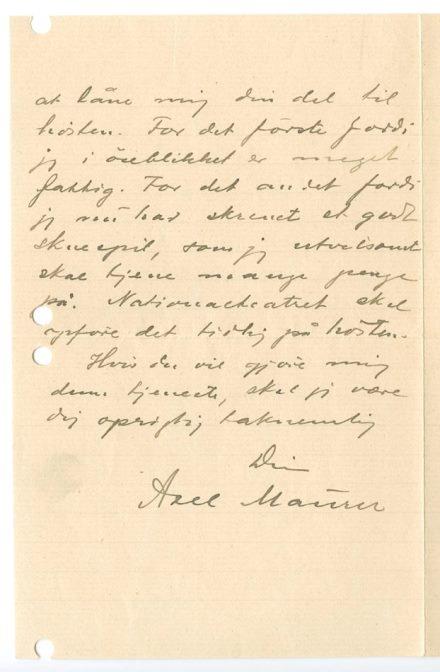 at låne mig din del til
hösten. For det förste fordi
jeg i öieblikket er meget
fattig. For det andet fordi
jeg nu har skrevet et godt
skuespil, som jeg utvilsomt
skal tjene mange penge
på. Nationalteatret skal
opföre det tidlig på hösten.
Hvis du vil gjöre mig
denne tjeneste, skal jeg være
dig oprigtig taknemlig
Din
Axel Maurer